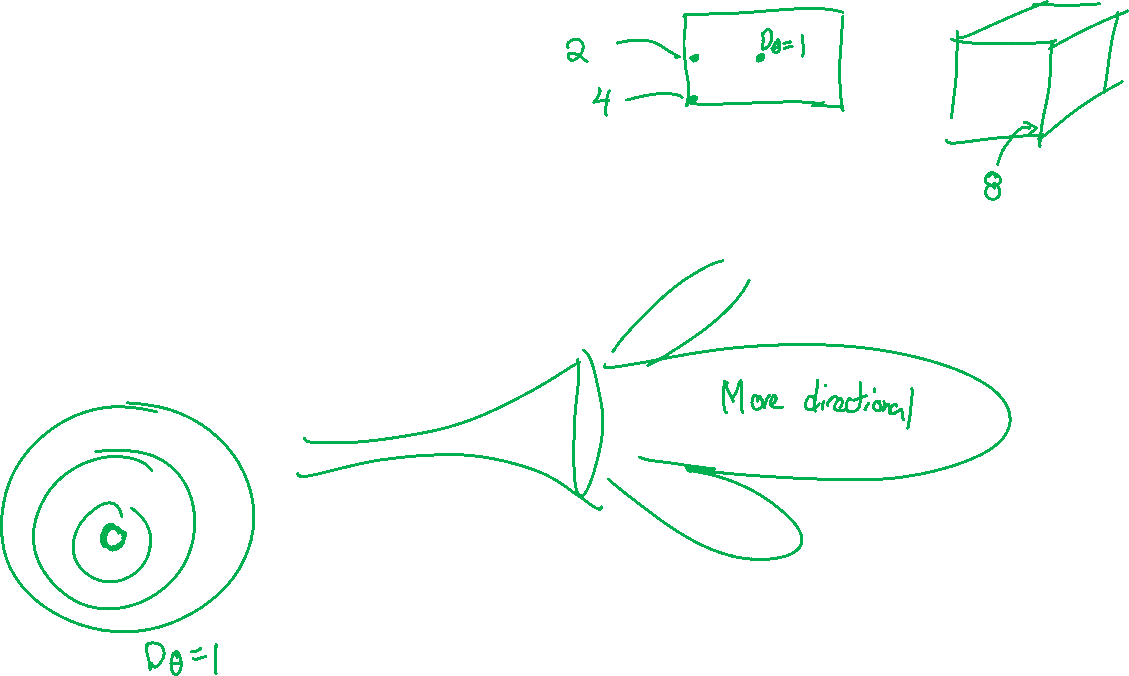 2
Dθ=1
4
8
More directional
Dθ=1